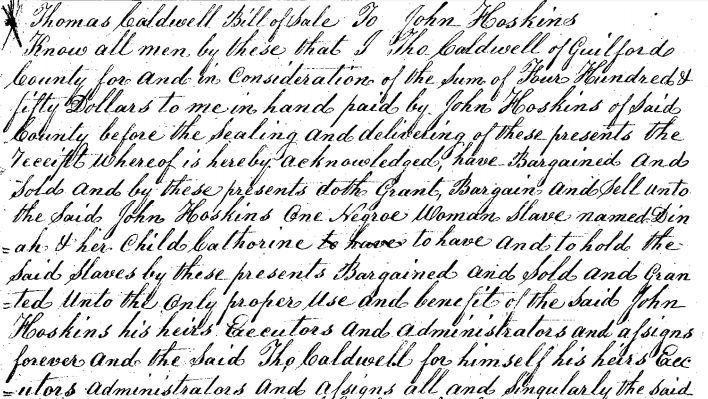 Thomas Caldwell Bill of Sale To John Hoskins
Know all men by these that I Tho Caldwell of Guilford
County for and in Consideration of the Sum of Four Hundred &
fifty Dollars to me in hand paid by John Hoskins of Said
County before the Sealing and delivering of these presents the
receipt whereof is hereby acknowledged, have Bargained and
Sold and by these presents doth Grant, Bargain and Sell unto
the Said John Hoskins One Negroe Woman Slave named Din
=ah & her Child Cathorine to have to have and to hold the
Said Slaves by these presents Bargained and Sold and Gran
=ted Unto the Only proper Use and benefit of the Said John
Hoskins his heirs Executors and administrators and assigns
forever and the Said Tho Caldwell for himself his heirs Exec
=utors administrators and assigns all and Singularly the Said